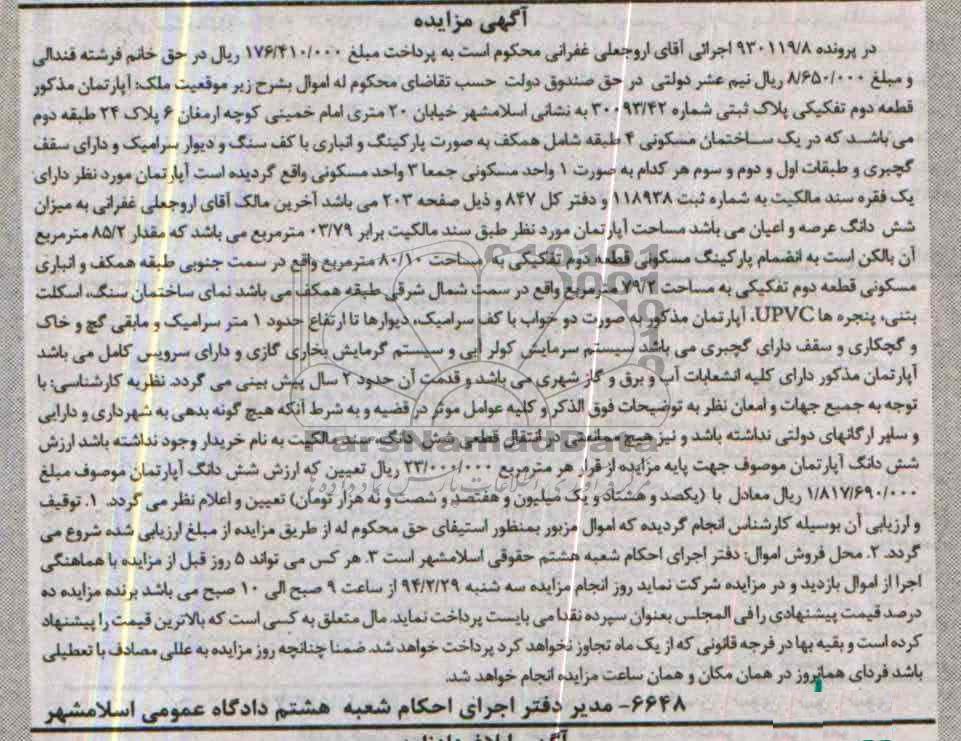 آگهی مزایده
در پرونده ۹۳۰۱۱۹/۸ اجرائی آقای اروجعلی غفرانی محکوم است به پرداخت مبلغ ۱۷۶/۴۱۰/۰۰۰ ریال در حق خانم فرشته قندالی
و مبلغ ۸/۶۵۰/۰۰۰ ریال نیم عشر دولتی در حق صندوق دولت حسب تقاضای محکوم له اموال بشرح زیر موقعیت ملک: آپارتمان مذکور
قطعه دوم تفکیکی پلاک ثبتی شماره ۳۰۰۹۳/۴۲ به نشانی اسلامشهر خیابان ۲۰ متری امام خمینی کوچه ارمغان ۶ پلاک ۲۴ طبقه دوم
می باشد که در یک ساختمان مسکونی ۴ طبقه شامل همکف به صورت پارکینگ و انباری با کف سنگ و دیوار سرامیک و دارای سقف
گچبری و طبقات اول و دوم و سوم هر کدام به صورت ۱ واحد مسکونی جمعا ۳ واحد مسکونی واقع گردیده است آپارتمان مورد نظر دارای
یک فقره سند مالکیت به شماره ثبت ۱۱۸۹۳۸ و دفتر کل ۸۴۷ و ذیل صفحه ۲۰۳ می باشد آخرین مالک آقای اروجعلی غفرانی به میزان
شش دانگ عرصه و اعیان می باشد مساحت آپارتمان مورد نظر طبق سند مالکیت برابر ۰۳/۷۹ مترمربع می باشد که مقدار ۸۵/۲ مترمربع
آن بالکن است به انضمام پارکینگ مسکونی قطعه دوم تفکیکی به مساحت ۸۰/۱۰ مترمربع واقع در سمت جنوبی طبقه همکف و انباری
مسکونی قطعه دوم تفکیکی به مساحت ۷۹/۲ مترمربع واقع در سمت شمال شرقی طبقه همکف می باشد نمای ساختمان سنگ، اسکلت
بتنی، پنجره ها UPVC، آپارتمان مذکور به صورت دو خواب با کف سرامیک، دیوارها تا ارتفاع حدود ۱ متر سرامیک و مابقی گچ و خاک
و گچکاری و سقف دارای گچبری می باشد سیستم سرمایش کولر آبی و سیستم گرمایش بخاری گازی و دارای سرویس کامل می باشد
آپارتمان مذکور دارای کلیه انشعابات آب و برق و گاز شهری می باشد و قدمت آن حدود ۲ سال پیش بینی می گردد. نظریه کارشناسی: با
توجه به جمیع جهات و امعان نظر به توضیحات فوق الذکر و کلیه عوامل موثر در قضیه و به شرط آنکه هیچ گونه بدهی به شهرداری و دارایی
و سایر ارگانهای دولتی نداشته باشد و نیز هیچ ممانعتی در انتقال قطعی شش دانگ سند مالکیت به نام خریدار وجود نداشته باشد ارزش
شش دانگ آپارتمان موصوف جهت پایه مزایده از قرار هر مترمربع ۲۳/۰۰۰/۰۰۰ ریال تعیین که ارزش شش دانگ آپارتمان موصوف مبلغ
۱/۸۱۷/۶۹۰/۰۰۰ ریال معادل با (یکصد و هشتاد و یک میلیون و هفتصد و شصت و نه هزار تومان) تعیین و اعلام نظر می گردد. ۱. توقیف
و ارزیابی آن بوسیله کارشناس انجام گردیده که اموال مزبور بمنظور استیفای حق محکوم له از طریق مزایده از مبلغ ارزیابی شده شروع می
گردد. ۲. محل فروش اموال: دفتر اجرای احکام شعبه هشتم حقوقی اسلامشهر است ۳. هر کس می تواند ۵ روز قبل از مزایده با هماهنگی
اجرا از اموال بازدید و در مزایده شرکت نماید روز انجام مزایده سه شنبه ۹۴/۲/۲۹ از ساعت ۹ صبح الی ۱۰ صبح می باشد برنده مزایده ده
درصد قیمت پیشنهادی را فی المجلس بعنوان سپرده نقدا می بایست پرداخت نماید. مال متعلق به کسی است که بالاترین قیمت را پیشنهاد
کرده است و بقیه بها در فرجه قانونی که از یک ماه تجاوز نخواهد کرد پرداخت خواهد شد. ضمنا چنانچه روز مزایده به عللی مصادف با تعطیلی
باشد فردای همانروز در همان مکان و همان ساعت مزایده انجام خواهد شد.
۶۶۴۸- مدیر دفتر اجرای احکام شعبه هشتم دادگاه عمومی اسلامشهر
ParsNamadData